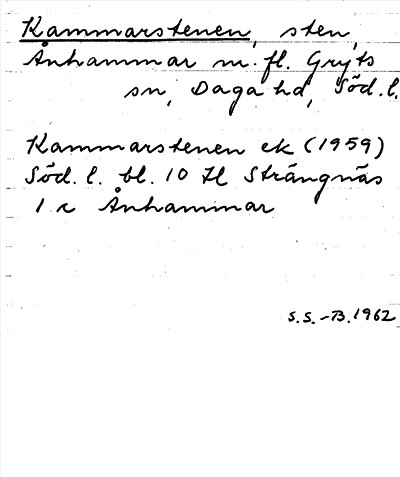 Kammarstenen, sten,
Ånhammar m. fl. Gryts
sn, Daga hd, Söd. l.
Kammarstenen ek (1959)
Söd. l. bl. 10 H Strängnäs
1 c Ånhammar
S.S.-B. 1962